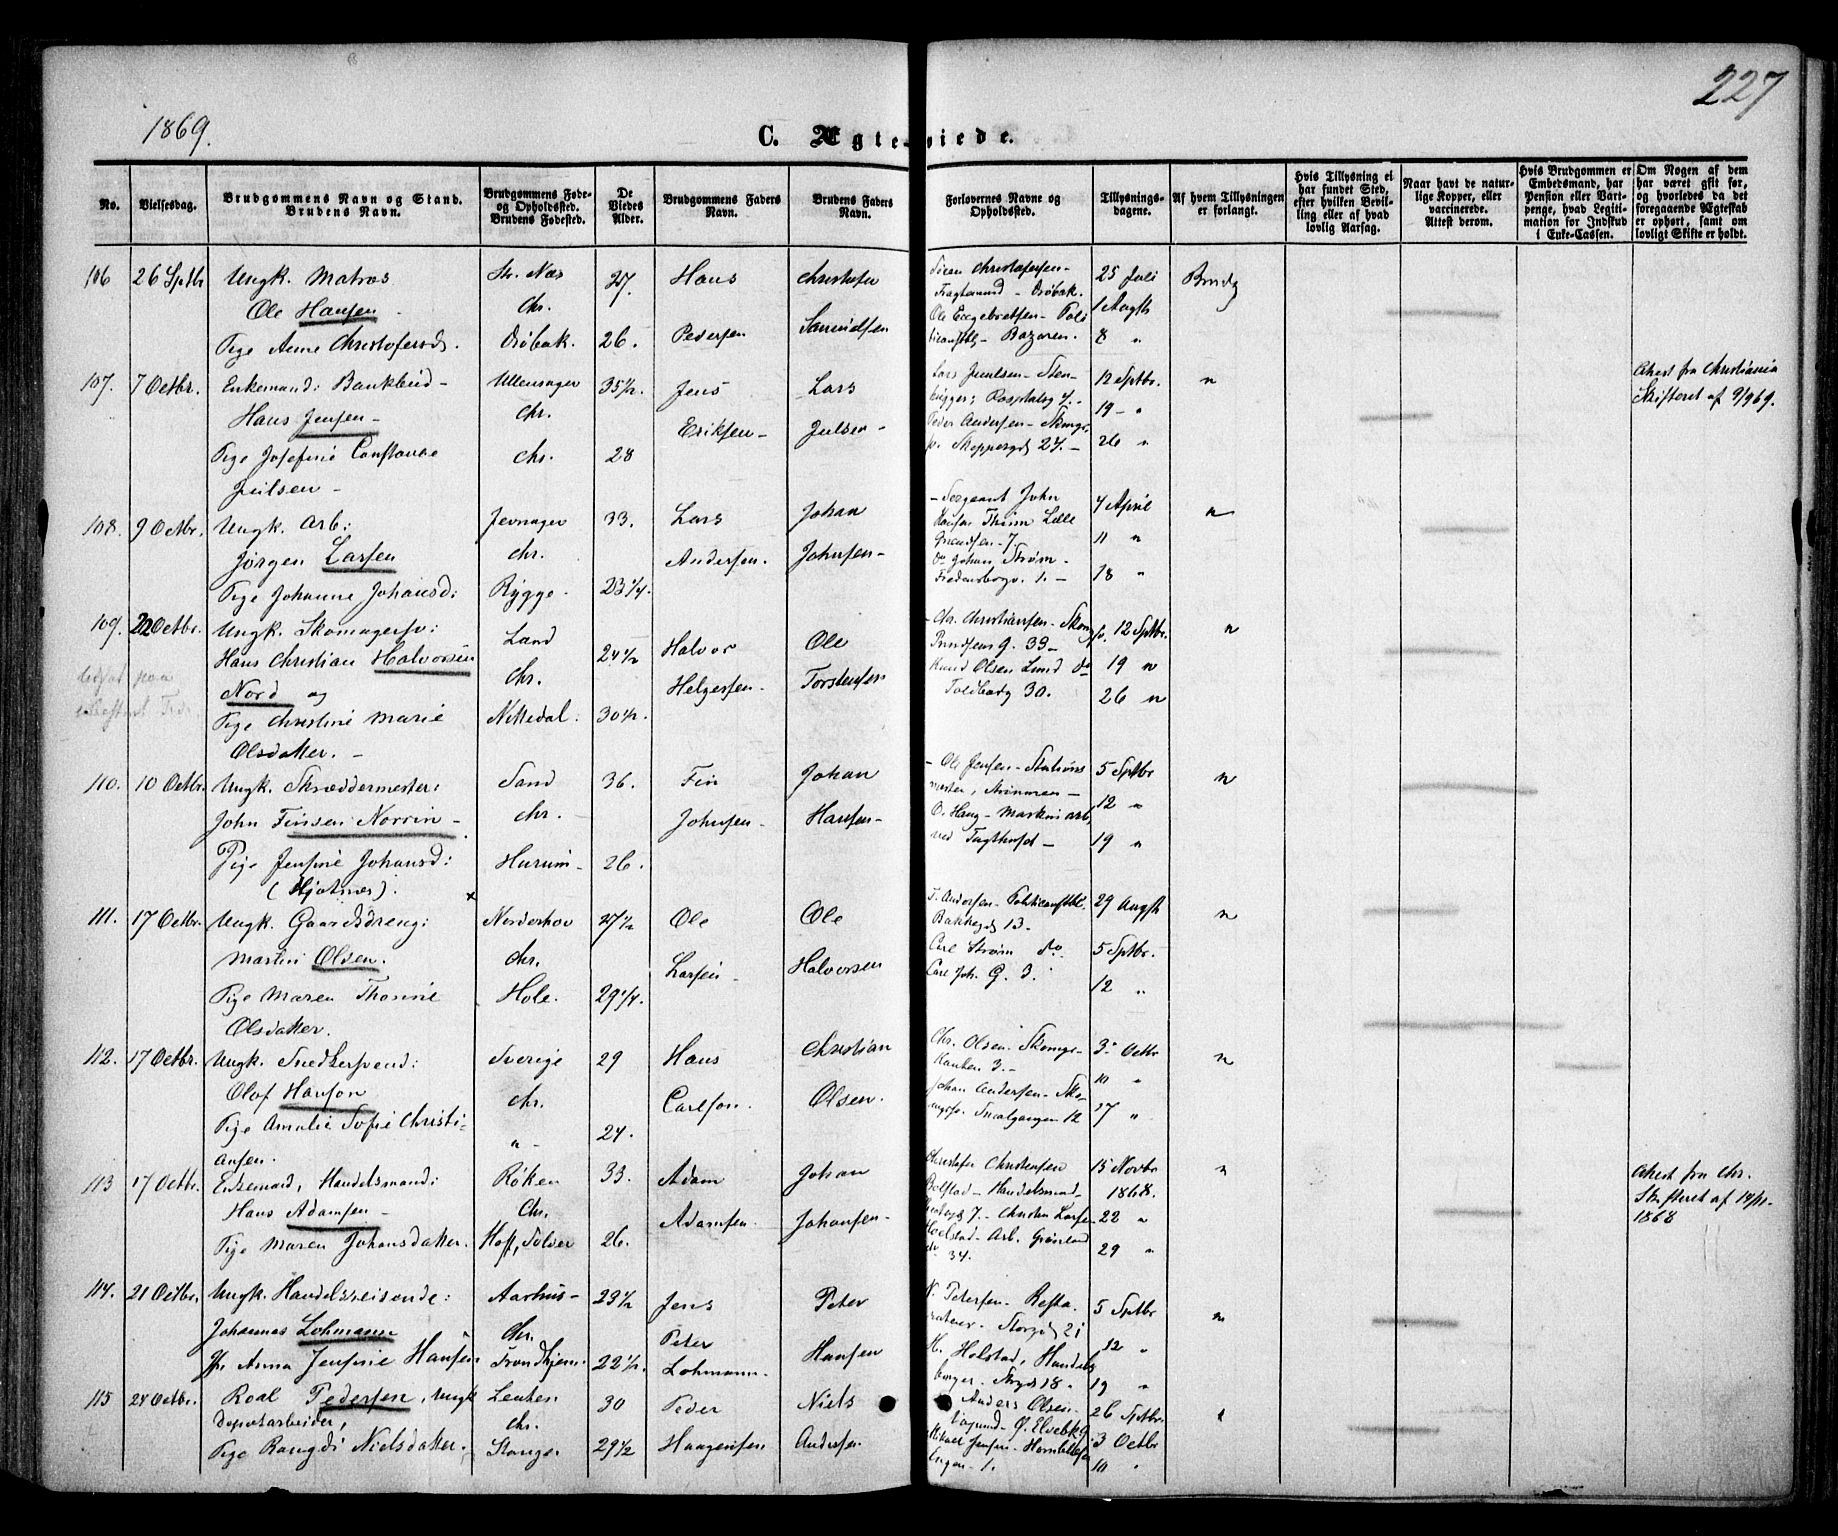 227
1869.
C. Ægteviede.
No.
Vielsesdag.
Brudgommens Navn og Stand.
Brudens Navn.
Brudgommens Føde-
og Opholdssted.
Brudens Fødested.
De
Viedes
Alder.
Brudgommens Faders
Navn.
Brudens Faders
Navn.
Forlovernes Navne og
Opholdssted.
Tillysnings-
dagene.
Af hvem Tillysningen
er forlangt.
Hvis Tillysning ei
har fundet Sted,
efter hvilken Bevil-
ling eller af hvad
lovlig Aarsag.
Naar havt de natur-
lige Kopper, eller
vaccinerede.
Attest derom.
Hvis Brudgommen er
Embedsmand, har
Pension eller Vart-
penge, hvad Legiti-
mation for Indskub
i Enke-Cassen.
Om Nogen af dem
har været gift før,
og hvorledes da det
foregaaende Ægteskab
er ophørt, samt om
lovligt Skifte er holdt.
106 26 Sptbr Ungk. Matros Str. Næs 27. Hans Christofer
Ole Hansen Chr. Pedersen Samuelsen
Pige Anne Christofersd. Drøbak. 26.
Christofersen - Drøbak. 25 Juli Brudg
Ole Engebretsen - Bazaren. 1 Augst
8 "
107. 7 Octbr. Enkemand: Bankbud - Ullensager 35 1/2 Jens Lars
Hans Jensen - Chr. Eriksen - Julsen -
Pige Josefine Constance Chr. 28
Juilsen -
Lars Juulsen - Sten- 12 Sptbr. "
19 - "
Peder Andersen - Skomgr. 26 "
Skippergd 27. -
Attest fra Christiania
Skifteret af 9/9 69.
108. 9 Octbr. Ungk. Arb: Jevnager 33. Lars Johan
Jørgen Larsen Chr. Andersen. Johnsen -
Pige Johanne Johansd: Rygge. 23 1/4.
- Sergeant John 4 April "
Lille
Grændsen - 7. 11 "
do Johan Strøm -
Fredensborgv. 1. - 18 "
109. 22 Octbr. Ungk. Skomagersv: Land 24 1/2 Halvor Ole
Hans Christian Halvorsen Chr. Helgesen. Torstensen
Nord og
Pige Christine Marie Nittedal. 30 1/2.
Olsdatter. -
- Chr. Christiansen - Skomgsv. 12 Sptbr. "
Prindsens G. 39 -
Knud Olsen Lund do 19 "
Toldbodg 30. 26 "
110. 10 Octbr. Ungk. Skræddermester: Sand 36. Fin Johan
John Finsen Norrin - Chr. Johnsen - Hansen -
Pige Jensine Johansd: Hurum - 26.
(Hjotnæs).
- Ole Jensen - Stations 5 Sptbr "
mester, Strømmen -
O. Haug - Maskinarb, 12 "
ved Tugthuset - 19 "
111. 17 Octbr. Ungk. Gaardsdreng: Norderhov 27 1/2 Ole Ole
Martin Olsen. Chr. Larsen - Halvorsen
Pige Maren Thorine Hole. 29 1/4.
Olsdatter.
T. Andersen - Politiconstbl. 29 Augst "
Bakkegd 13.
Carl Strøm do. 5 Sptbr.
Carl Joh. G. 3. 12 "
112. 17 Octbr. Ungk. Snedkersvend: Sverige 29 Hans Christian
Olof Hanson Chr. Carlson. Olsen.
Pige Amalie Sofie Christi- " - 24.
ansen.
Chr. Olsen - Skomgr. 3. Octbr "
3. - 10 "
Johan Andersen - Sko-
Smalgangen 12 17 "
113 17 Octbr. Enkemand, Handelsmand: Røken 33. Adam Johan
Hans Adamsen - Chr. Adamsen. Johansen -
Pige Maren Johansdatter. Hoff, Solør 26.
Christofer Christensen 15 Novbr "
Bolstad - Handelsmand - 1868.
7. - Christen Larsen 22 "
Arb. Grønland
34. 29 "
Attest fra Chr.
Skifteret af 14/11.
1868
114. 21 Octbr. Ungk. Handelsreisende: Aarhus - 23 1/2 Jens Peter
Johannes Lohmann Chr. Peter Hansen
Jfr Anna Jensine Hansen Trondhjem 22 1/2. Lohmann.
N. Petersen - Restau- 5 Sptbr "
ratør - Storgd 21
H. Holstad, Handels 12 "
borger. Strgd 18. 19 "
115 24 Octbr. Roal Pedersen, Ungk Leuten 30 Peder Niels
Depotarbeider, Chr. Haagensen Andersen
Pige Rangdi Nielsdatter. Stange. 29 1/2
Anders Olsen - 26 Sptbr. "
3 Octbr
Engen - 1. 10 "